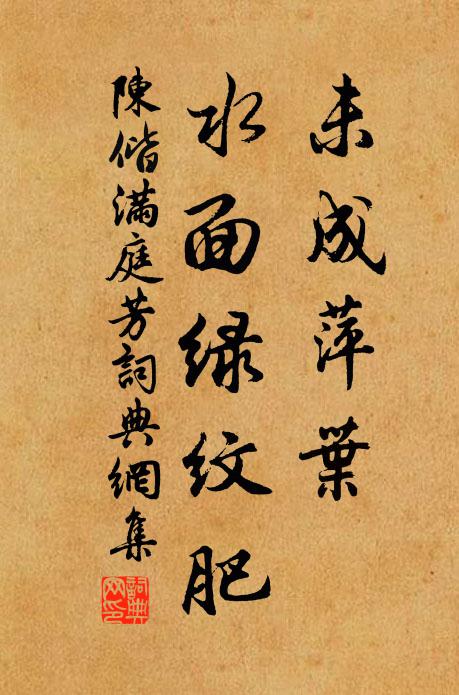 未成萍葉
水面绿纹肥
陳偕滿庭芳詞典網集
詞典網印